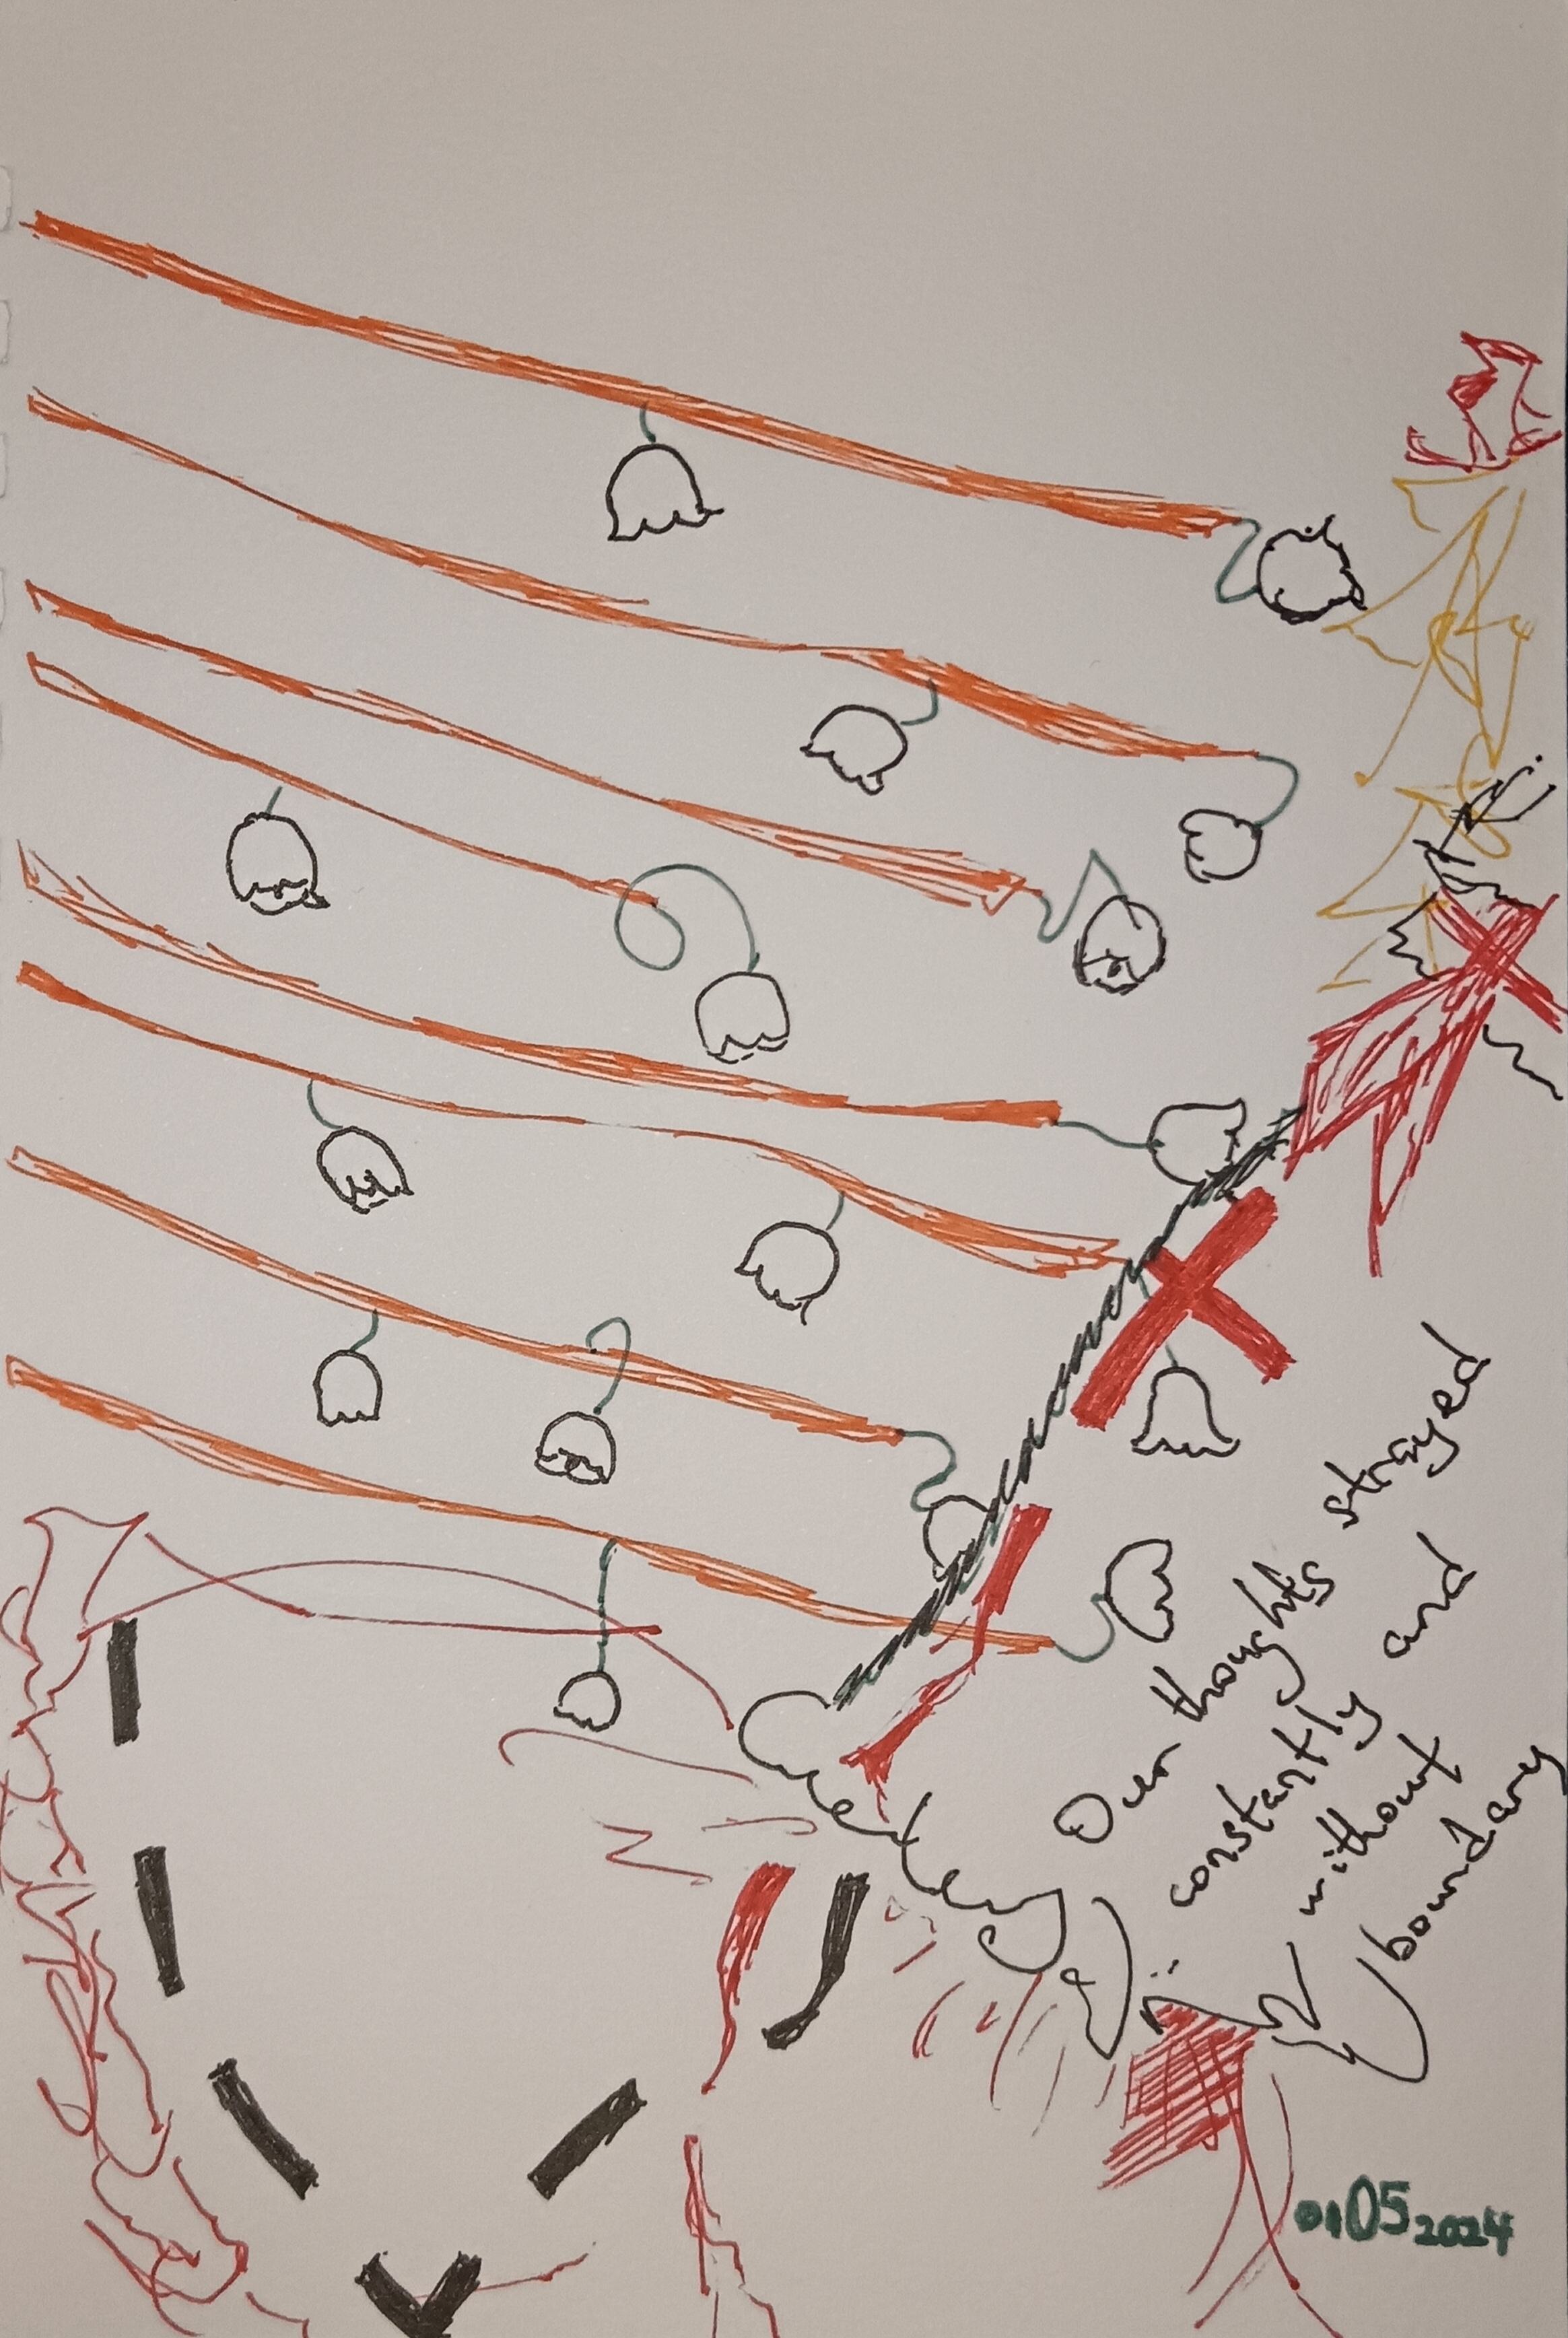 Our thoughts strayed
constantly and
without
boundary
01052024